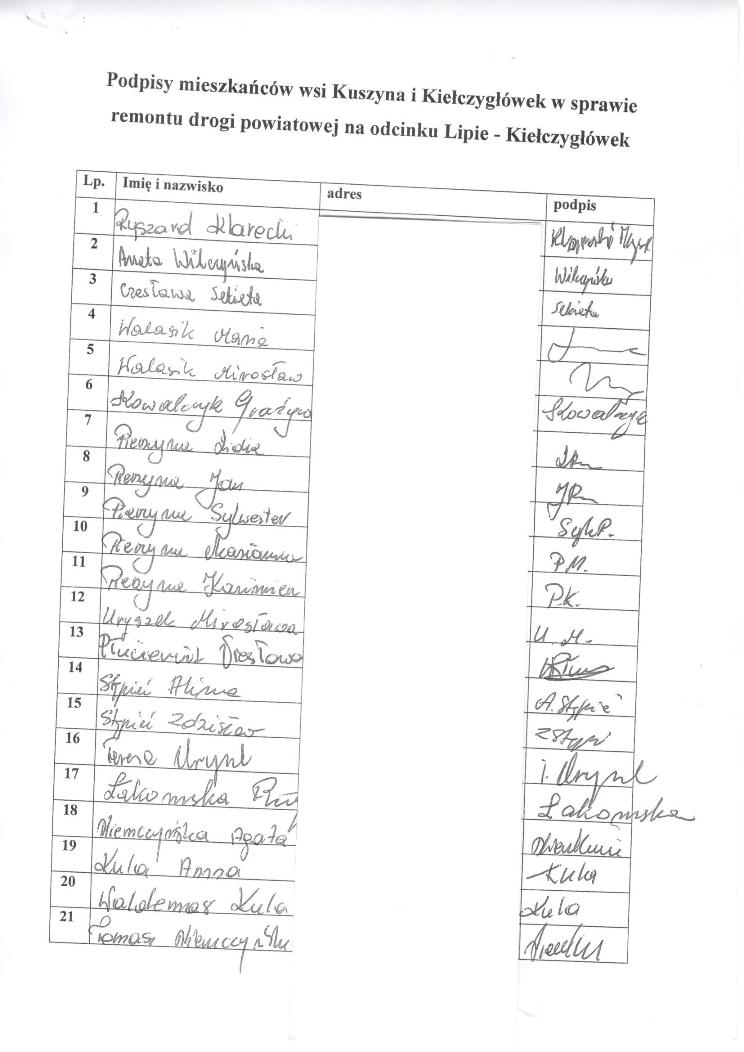 Podpisy mieszkańców wsi Kuszyna i Kiełczygłówek w sprawie
remontu drogi powiatowej na odcinku Lipie - Kiełczygłówek
Lp. Imię i nazwisko adres podpis
1 Ryszard Klarecki
2 Aneta Wilczyńska Wilczyńska
3 Czesława Sekieta Sekieta
4 Walasik Maria
5 Walasik Mirosław
6 Skowalczyk Grażyna
7 Pierzyna Lidia
8 Pierzyna Jan JP
9 Pierzyna Sylwester Syl.P.
10 Pierzyna Marianna P.M.
11 Pierzyna Kazimierz P.K.
12 Uryszek Mirosława U.M.
13
14 Stępień Alina A. Stępień
15 Stępień Zdzisław
16 Teresa
17 Łakomska Łakomska
18 Niemczyńska Agata
19 Kula Anna Kula
20 Waldemar Kula Kula
21 Tomasz Niemczyński